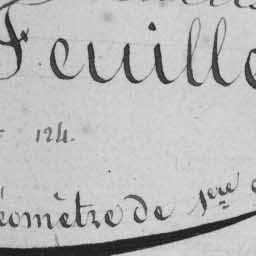 Feuille
124.
éomètre de 1ere